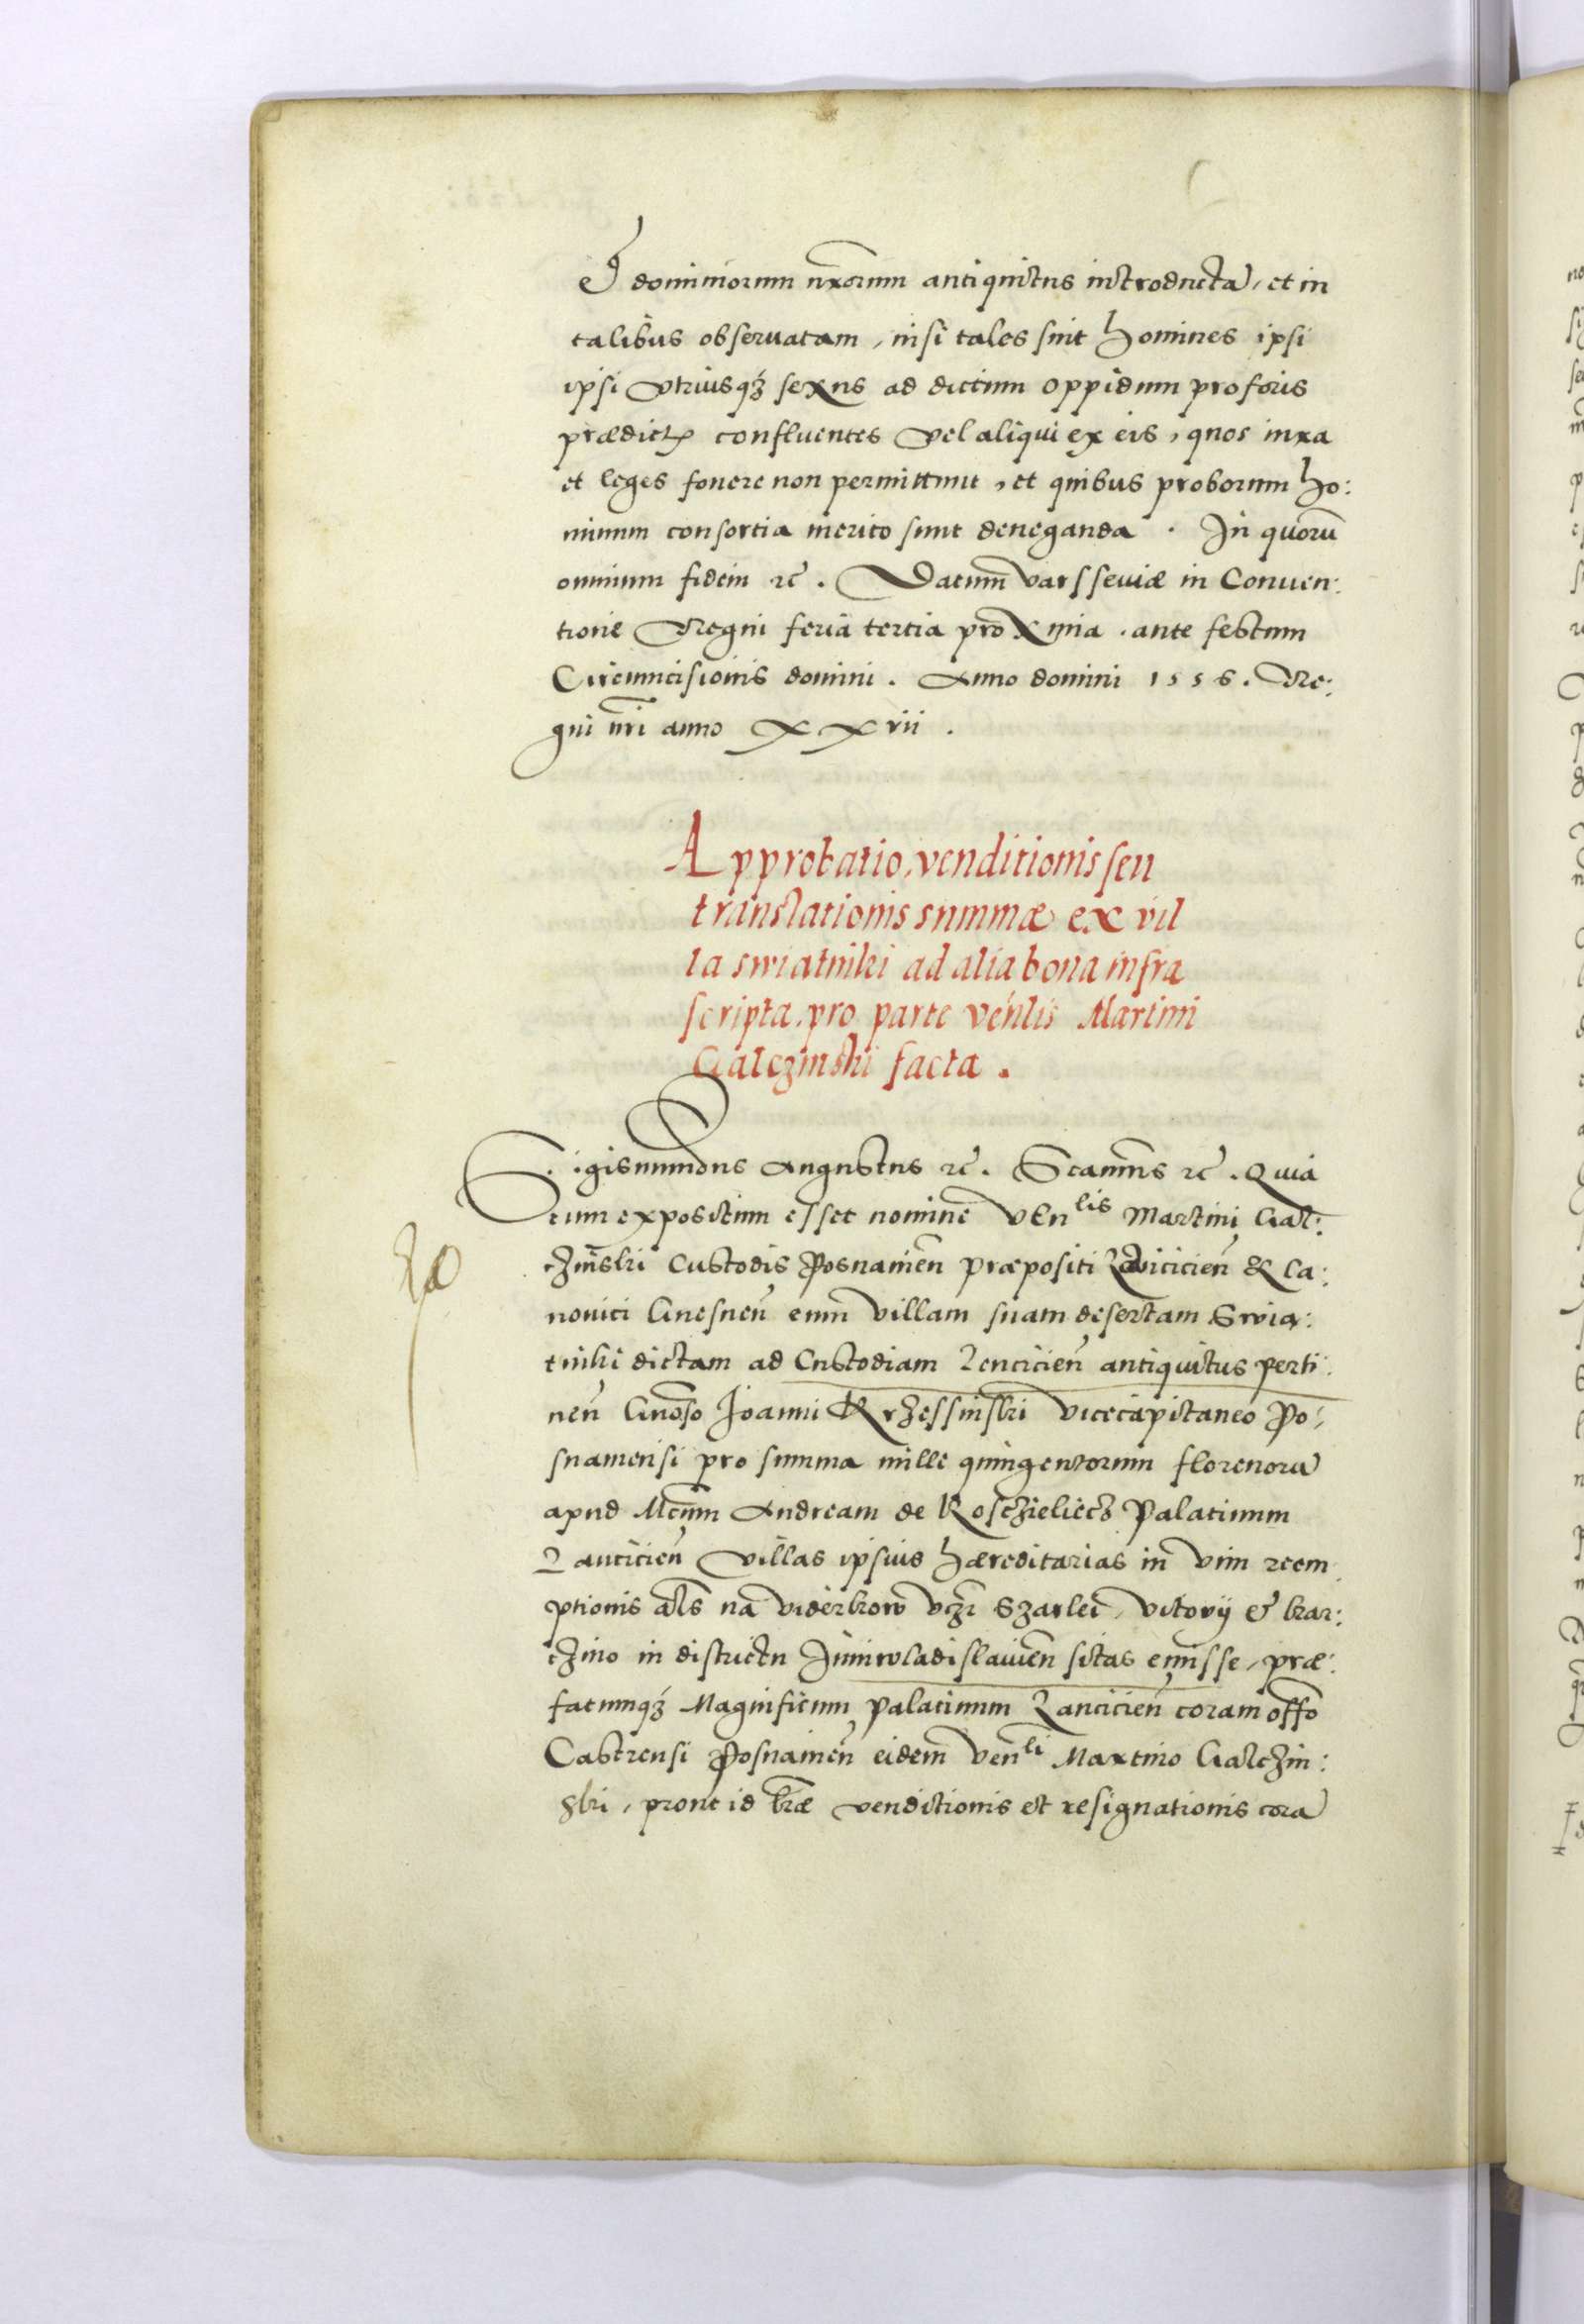 et dominiorum nrorum antiquitus introducta, et in
talibus obseruatam, nisi tales sint homines ipsi
ipsi vtriusq3 sexus ad dictum oppidum pro foris
prædict confluentes vel aliqui ex eis, quos iura
et leges fouere non permittunt, et quibus proborum ho:
minum consortia merito sunt deneganda. In quorū
omnium fidem rc. Datum varsseuiæ in Conuen:
tione Regni feria tertia proxima. ante festum
Circumcisionis domini. Anno domini 1556. Re:
gni nri anno xxvii.
Approbatio, venditionis seu
translationis summæ ex vil
la swiatniki ad alia bona infra
scripta. pro parte venlis Martini
Galczinski facta.
Sigismundus Augustus rc. Scamus rc. Quia
cum expositum esset nomine venlis Martini Gal:
czinski Custodis Posnanien præpositi Lanicicien & Ca:
nonici Gnesnen eum villam suam desertam Swia:
tniki dictam ad Custodiam Lencicien antiquitus perti:
nen Gnoso Joanni Krzessinski vicecapitaneo Po:
snaniensi pro summa mille quingentorum florenorū
apud Mcum Andream de Koschieliecz Palatinum
Lancicien villas ipsius hæreditarias in vim reem
ptionis als na viderkow vzr Szarlei, vitowy et kar:
czino in districtu Juniwladislauien sitas emisse, præ:
fatumq3 Magnificum Palatinum Lancicien coram offo
Castrensi Posnanien eidem venli Martino Galczin:
ski, prout id lræ venditionis et resignationis cora